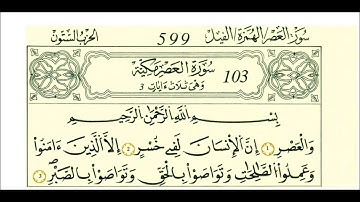 سُورَةُ العَصْرِ/الهُمَزَةِ/الفِيلِ 599 الحِزْبُ السِّتُّونَ
سُورَةُ العَصْرِ مَكِّيَّة 103
وَهْيَ ثَلَاثُ ءَايَاتٍ 3
بِسْمِ اللَّهِ الرَّحْمَٰنِ الرَّحِيمِ
وَالْعَصْرِ ١ إِنَّ الْإِنسَانَ لَفِي خُسْرٍ ٢ إِلَّا الَّذِينَ ءَامَنُوا
وَعَمِلُوا الصَّالِحَاتِ وَتَوَاصَوْا بِالْحَقِّ وَتَوَاصَوْا بِالصَّبْرِ ٣